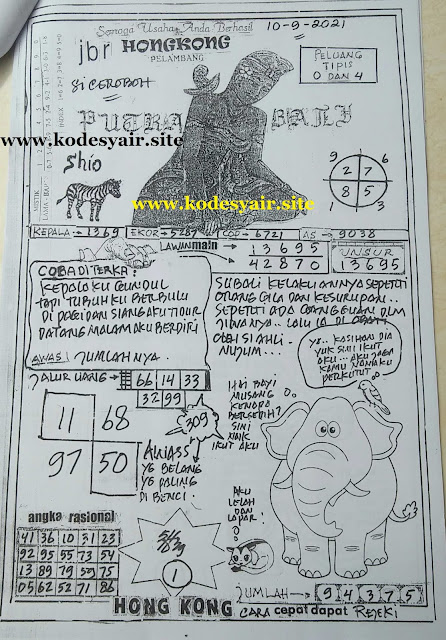 Semoga Usaha Anda Berhasil
10-9-2021
jbr HONGKONG
PELAMBANG
SI CEROBOH
PELUANG
TIPIS
0 DAN 4
PUTRA BALI
www.kodesyair.site
Shio
www.kodesyair.site
2 7
8 5
1 3
KEPALA → 1369 EKOR → 5287 COD → 6721 AS → 9038
LAWIN main
1 3 6 9 5
4 2 8 7 0
UNSUR
13695
COBA DITERKA:
KEPALAKU GUNDUL
TAPI TUBUHKU BERBULU
DI PAGI DAN SIANG AKU TIDUR
DATANG MALAM AKU BERDIRI
AWAS! JUMLAHNYA.
SUBALI KELAKUANNYA SEPERTI
ORANG GILA DAN KESURUPAN..
SEPERTI ADA GANGGUAN DLM
JIWANYA.. LALU IA DI OBATI
OLEH SI AHLI.
NUJUM...
YA.. KASIHAN DIA
YUK SINI IKUT
AKU... AKU JAGA
KAMU NANTI AKU
PERKUTUT
JALUR UANG → 66 14 33
32 99
309
11 68
97 50
HAI BAYI
MUSANG
KENAPA
BERSEDIH?
SINI
NAIK
IKUT AKU
ALIASS
YG BELANG
YG PALING
DI BENCI.
AKU
LELAH
DAN
LAPAR!
angka rasional
41 36 10 31 23
92 95 55 73 54
13 89 79 59 75
05 62 52 71 86
1
JUMLAH → 9 4 3 7 5
HONG KONG CARA cepat dapat REJEKI